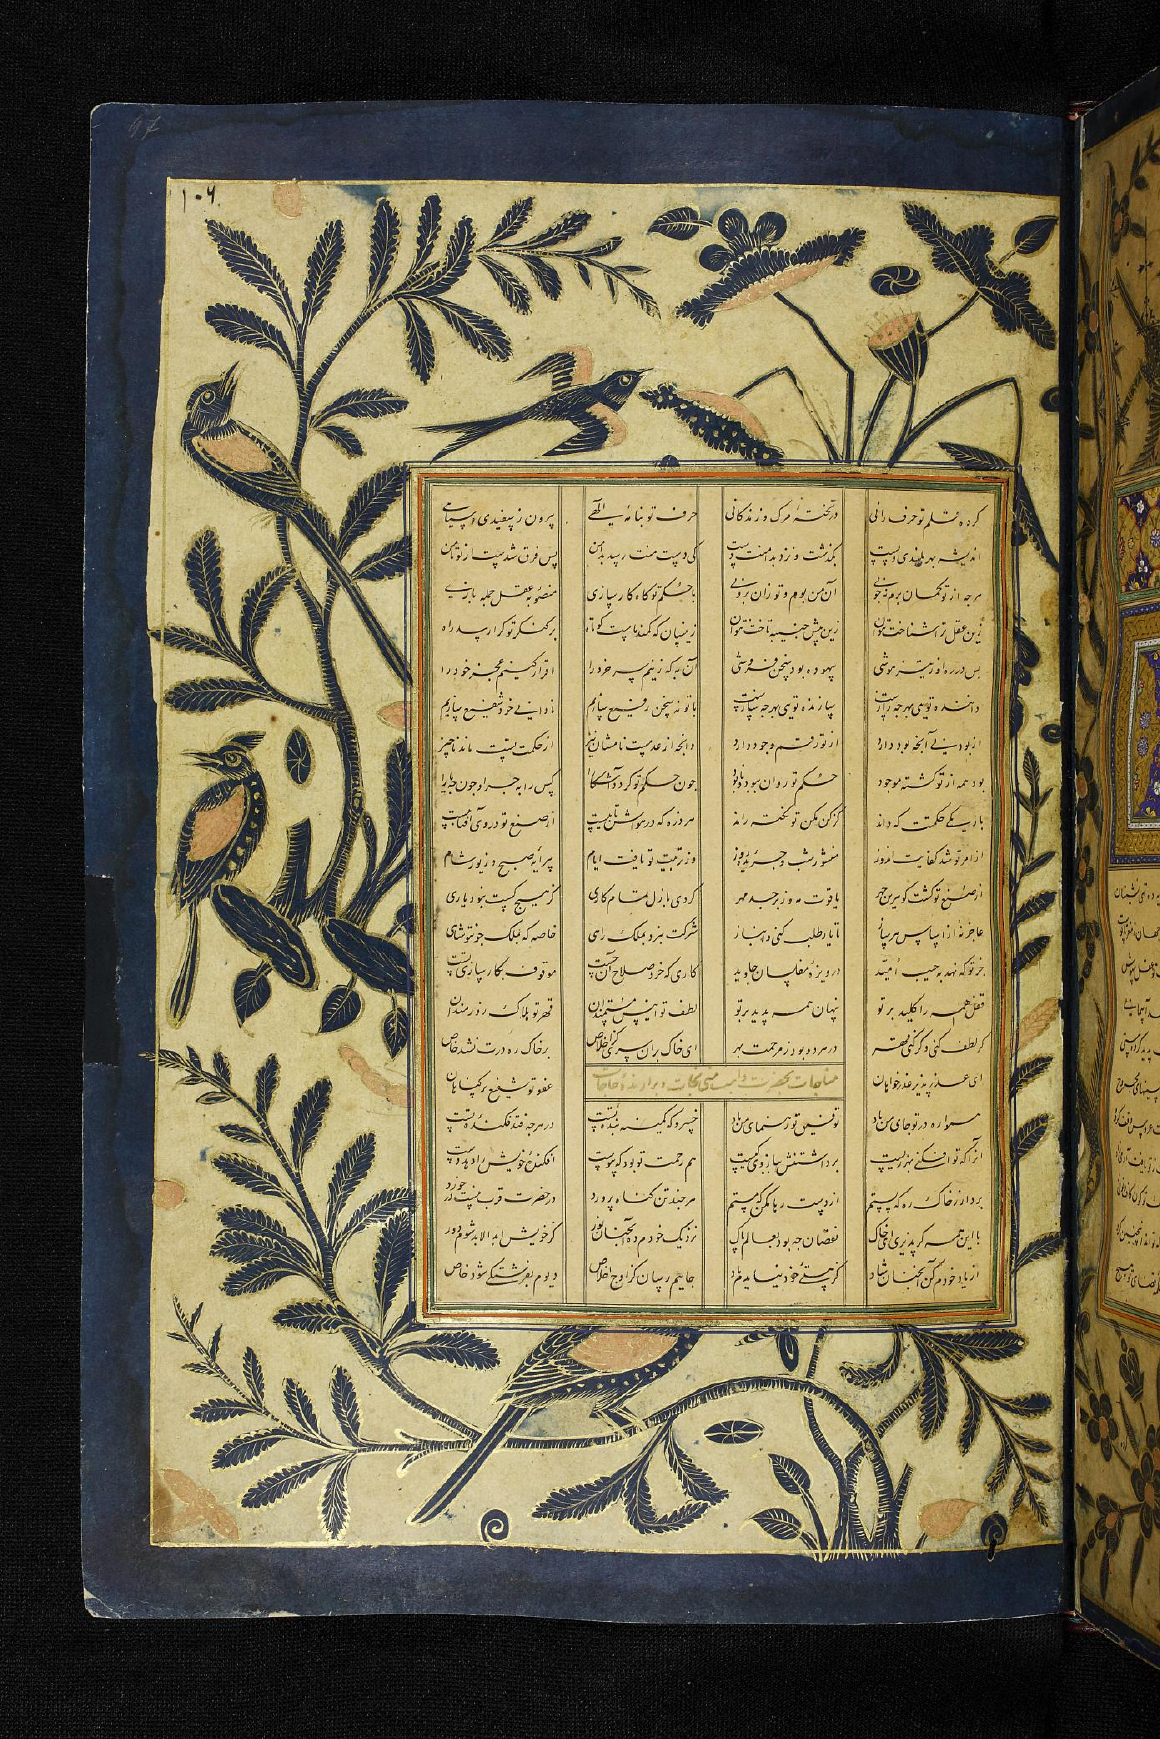 ۱۰۶
کرده قلم تو حرف رانی در تختهٔ مرگ و زندگانی حرف تو بنامهٔ الهی بیرون ز سپیدی و سیاهی
اندیشه بلندی و پست بگذشت و نزد بدامنت دست کی دست رسد من پس فرق شدست از تو تا من
هر چه از تو گمان برم نه چونی آن من بوم و تو زان برونی با حکم تو کاه کارسازی منصوبه عقل جمله بازی
زین عقل ترا شناخت نتوان زین پیش جنیبه تاخت نتوان زینسان که کمند ماست کوتاه بر کنگر تو کرا رسد راه
بس در ره تو ز تیز هوشی بیهوده بود سخن فروشی آن به که خود را اقرار کنم عجز خود را
داننده توئی بهر چه رازست سازنده توی بهر چه سازست با تو نه سخن رفیع سازم نادانی خود شفیع سازم
از بود نی آنچه بود دارد از تو رقم وجود دارد وانچه از عدمست نامشان نیز از حکمت تست ماند ناچیز
بود همه از تو گشته موجود حکم تو روان ببود و نابود چون حکم تو کرد آشکارا کس را به چرا و چون چه یارا
باریکی حکمتت که داند گر کن مکن تو نکته راند هر ذره که در هوا شتابیست از صنع تو در وی آفتابیست
از امر تو شد کفایت آموز منشور شب و جریدهٔ روز وز تربیت تو یافت ایام پیرایهٔ صبح و زیور شام
از صنع تو گشت گوهرین چهر یاقوت مه و زبرجد مهر کردی بازل تمام کاری کز هیچ کست نبود یاری
عاجز نهٔ تا یاد طلب کنی و انباز شرکت نبرد بملک رای خاصه که بملک چون تو شاهی
جز تو که نهد به جیب امید دریوزهٔ مفلسان جاوید کاری که خرد صلاح آن جست موقوف بکارسازی تست
قفل همه را کلید بر تو پنهان همه پدید بر تو لطف تو انیس مستمندان قهر تو هلاک زورمندان
گر لطف کنی و گر کنی قهر در هر دو بود ز مرحمت بهر ای خاک بران سر کز اخلاص بر خاک ره درت نشد خاص
مناجات بحضرت واهب و برارنده حاجات
ای عذر پذیر عذر خواهان عفو تو شفیع بر گناهان
همواره در تو جای من باد توفیق تو رهنمای من باد خسرو که کمینه بندهٔ تست در هر چه فتد فکندهٔ تست
آنرا که تو افکنی بهر زیست برداشتنش ببازوی کیست هم رحمت تو بود که پیوست افکندهٔ خویش را دهد دست
بردار ز خاک ره که پستم از دست رها مکن که مستم هر چند تن گناه پرورد در حضرت قربتت نه در خورد
با این همه گر پذیری این خاک نقصان چه بود بعالم پاک نزدیک خودم ده آنچنان نور کز خویش ابد الابد شوم دور
از یاد خودم کن آنچنان شاد کز هستی خود نیایدم یاد جایم برسان کز اوج اخلاص دیوم بفرشتگی شود خاص